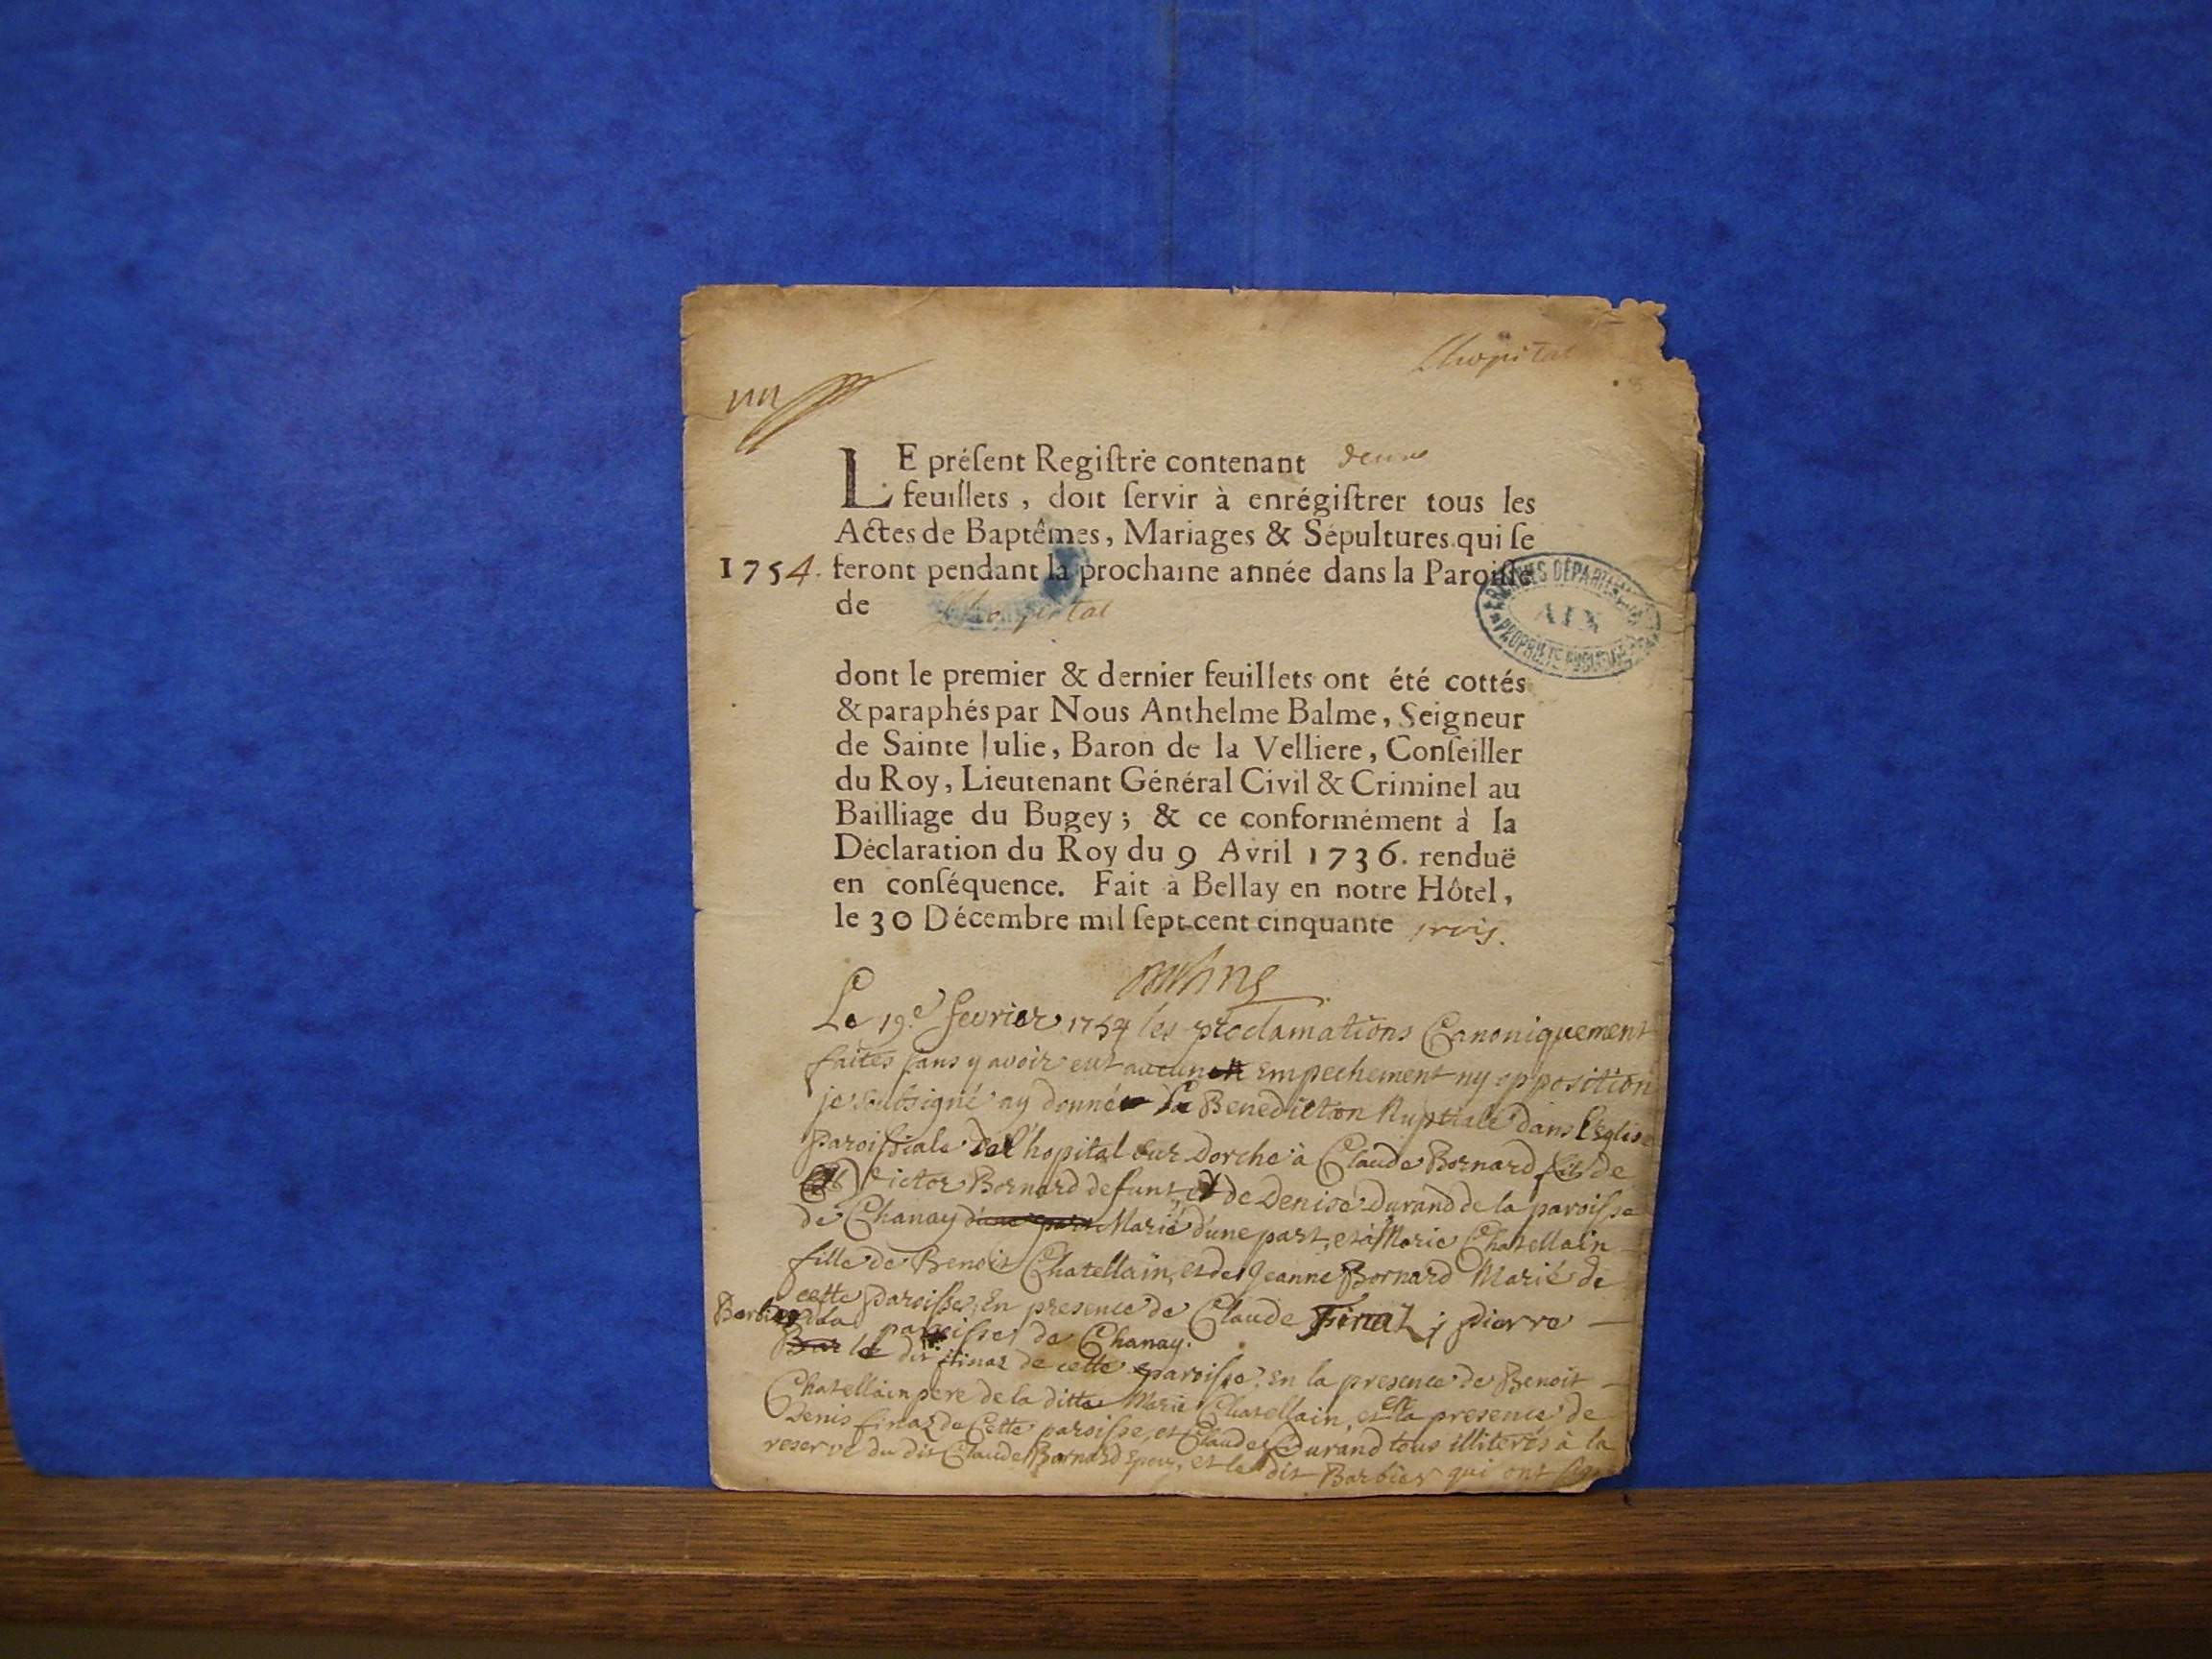 Lhopital
un
LE préſent Regiſtre contenant deux
feuillets, doit ſervir à enrégiſtrer tous les
Actes de Baptêmes, Mariages & Sépultures qui ſe
1754. feront pendant la prochaine année dans la Paroiſſe
de Lhopital
ARCHIVES DÉPARTEMENTALES
AIN
PROPRIÉTÉ PUBLIQUE
dont le premier & dernier feuillets ont été cottés
& paraphés par Nous Anthelme Balme, Seigneur
de Sainte Julie, Baron de la Velliere, Conſeiller
du Roy, Lieutenant Général Civil & Criminel au
Bailliage du Bugey; & ce conformément à la
Déclaration du Roy du 9 Avril 1736. renduë
en conſéquence. Fait à Bellay en notre Hôtel,
le 30 Décembre mil ſept cent cinquante trois.
Le 19.e fevrier 1754 les proclamations Canoniquement
faites sans y avoir eut aucun empechement ny opposition
je soubsigné ay donné la Benediction Nuptiale dans l'Eglise
paroissiale de l'hopital sur Dorche à Claude Bornard fils de
Victor Bornard defunt, et de Denise Durand de la paroisse
de Chanay d'une part Marié d'une part, et à Marie Chatellain
fille de Benoit Chatellain, et de Jeanne Bornard Marié de
cette paroisse, En presence de Claude Finaz ; pierre
Barbier de la paroisse de Chanay.
le dit finaz de cette paroisse. En la presence de Benoit
Chatellain pere de la ditte Marie Chatellain, et en la presence de
Denis finaz de Cette paroisse, et Claude Durand tous illiterés à la
reserve du dit Claude Bornard Epoux, et le dit Barbier qui ont